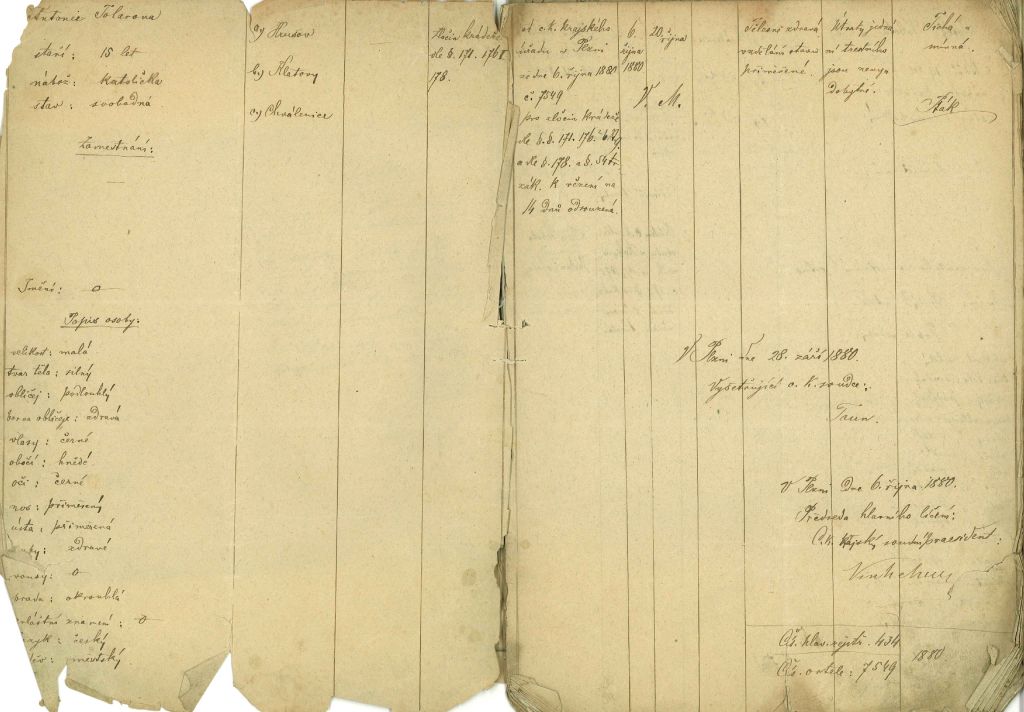 Antonie Tolarova
stáří: 15 let
nábož: katolička
stav: svobodná
Zaměstnání:
Jmění: o
Popis osoby:
velikost: malá
tvar těla: silný
obličej: podlouhlý
barva obličeje: zdravá
vlasy: černé
obočí: hnědé
oči: černé
nos: přiměřený
ústa: přiměřená
zuby: zdravé
vousy: o
brada: okrouhlá
zvláštní znamení: o
jazyk: český
oděv: městský
a) Hrusov
b) Klatovy
c) Chválenice
zločin krádeže
dle §. 171. 176 II
178.
od c.k. krajského
soudu v Plzni
ze dne 6. října 1880
č. 7549
pro zločin krádeže
dle §. §. 171. 176.
a dle §. 178. a §. 54 tr.
zák. k vězení na
14 dnů odsouzená.
6.
října
1880
20. října
V. M.
Tělesně zdravá
vzdělání stavu
přiměřené.
Útraty jedná-
ní trestního
jsou nevy-
dobytné.
Tichá
mírná.
V Plzni dne 28. září 1880.
Vyšetřující c. k. soudce:
V Plzni dne 6. října 1880.
Předseda hlavního líčení:
C.k. krajský soudní praesident:
Čís. hlav. rejstř. 434
Čís. ortele: 7549
1880